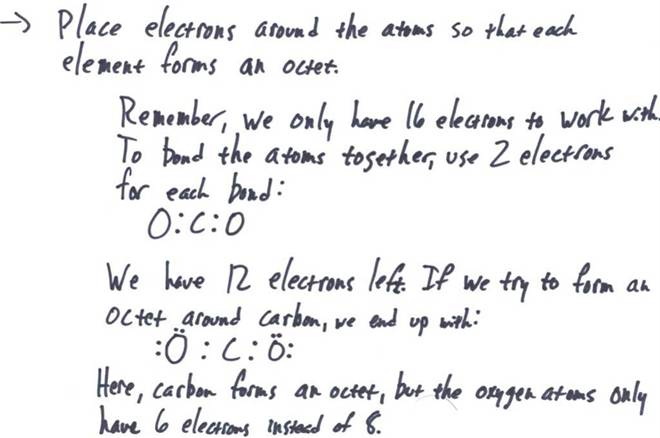 → Place electrons around the atoms so that each
element forms an octet.
Remember, we only have 16 electrons to work with.
To bond the atoms together, use 2 electrons
for each bond:
O:C:O
We have 12 electrons left. If we try to form an
octet around carbon, we end up with:
:Ö : C : Ö:
Here, carbon forms an octet, but the oxygen atoms only
have 6 electrons instead of 8.